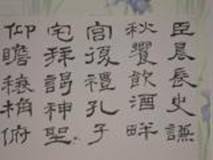 臣晨長史謙
秋饗飲酒畔
宮復禮孔子
宅拜謁神聖
仰瞻榱桷俯